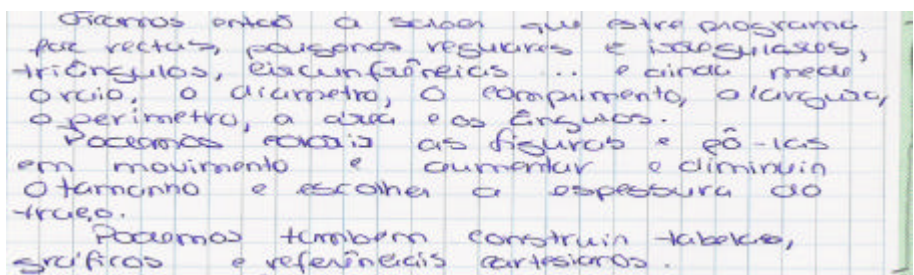 Ficamos então a saber que este programa
faz rectas, polígonos regulares e irregulares,
triângulos, circunferências ... e ainda mede
o raio, o diâmetro, o comprimento, a largura,
o perímetro, a área e os ângulos.
Podemos as figuras e pô-las
em movimento e aumentar e diminuir
o tamanho e escolher a espessura do
traço.
Podemos também construir tabelas,
gráficos e referênciais cartesianos.